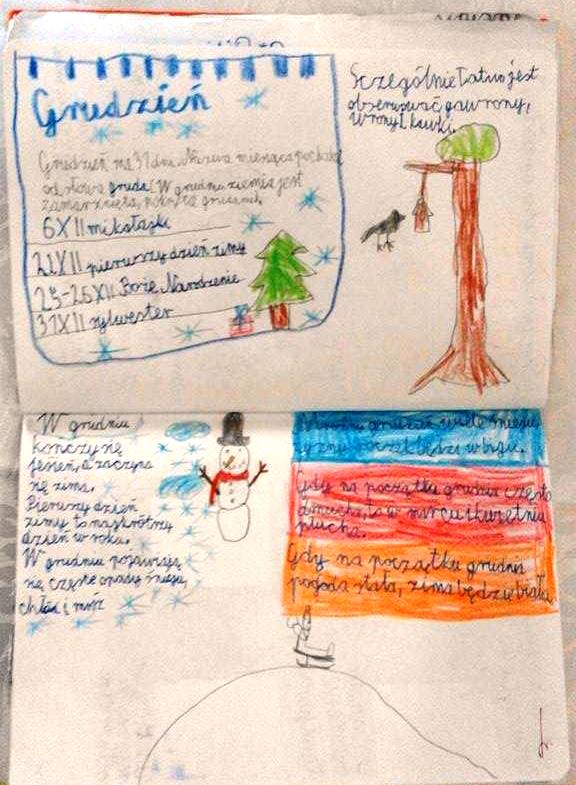 Grudzień
Grudzień ma 31 dni. Nazwa miesiąca pochodzi
od słowa gruda. W grudniu ziemia jest
zamarznięta,
6 XII mikołajki
22 XII pierwszy dzień zimy
25-26 XII Boże Narodzenie
31 XII sylwester
Szczególnie łatwo jest
obserwować gawrony,
wrony i kawki.
W grudniu
kończy się
jesień, a zaczyna
się zima.
Pierwszy dzień
zimy to najkrótszy
dzień w roku.
W grudniu pojawiają
się częste opady śniegu,
chłód i mróz
grudzień wiele śniegu,
będzie w biegu.
Gdy na początku grudnia często
dmucha, to w marcu i kwietniu
plucha.
Gdy na początku grudnia
pogoda stała, zima będzie biała.